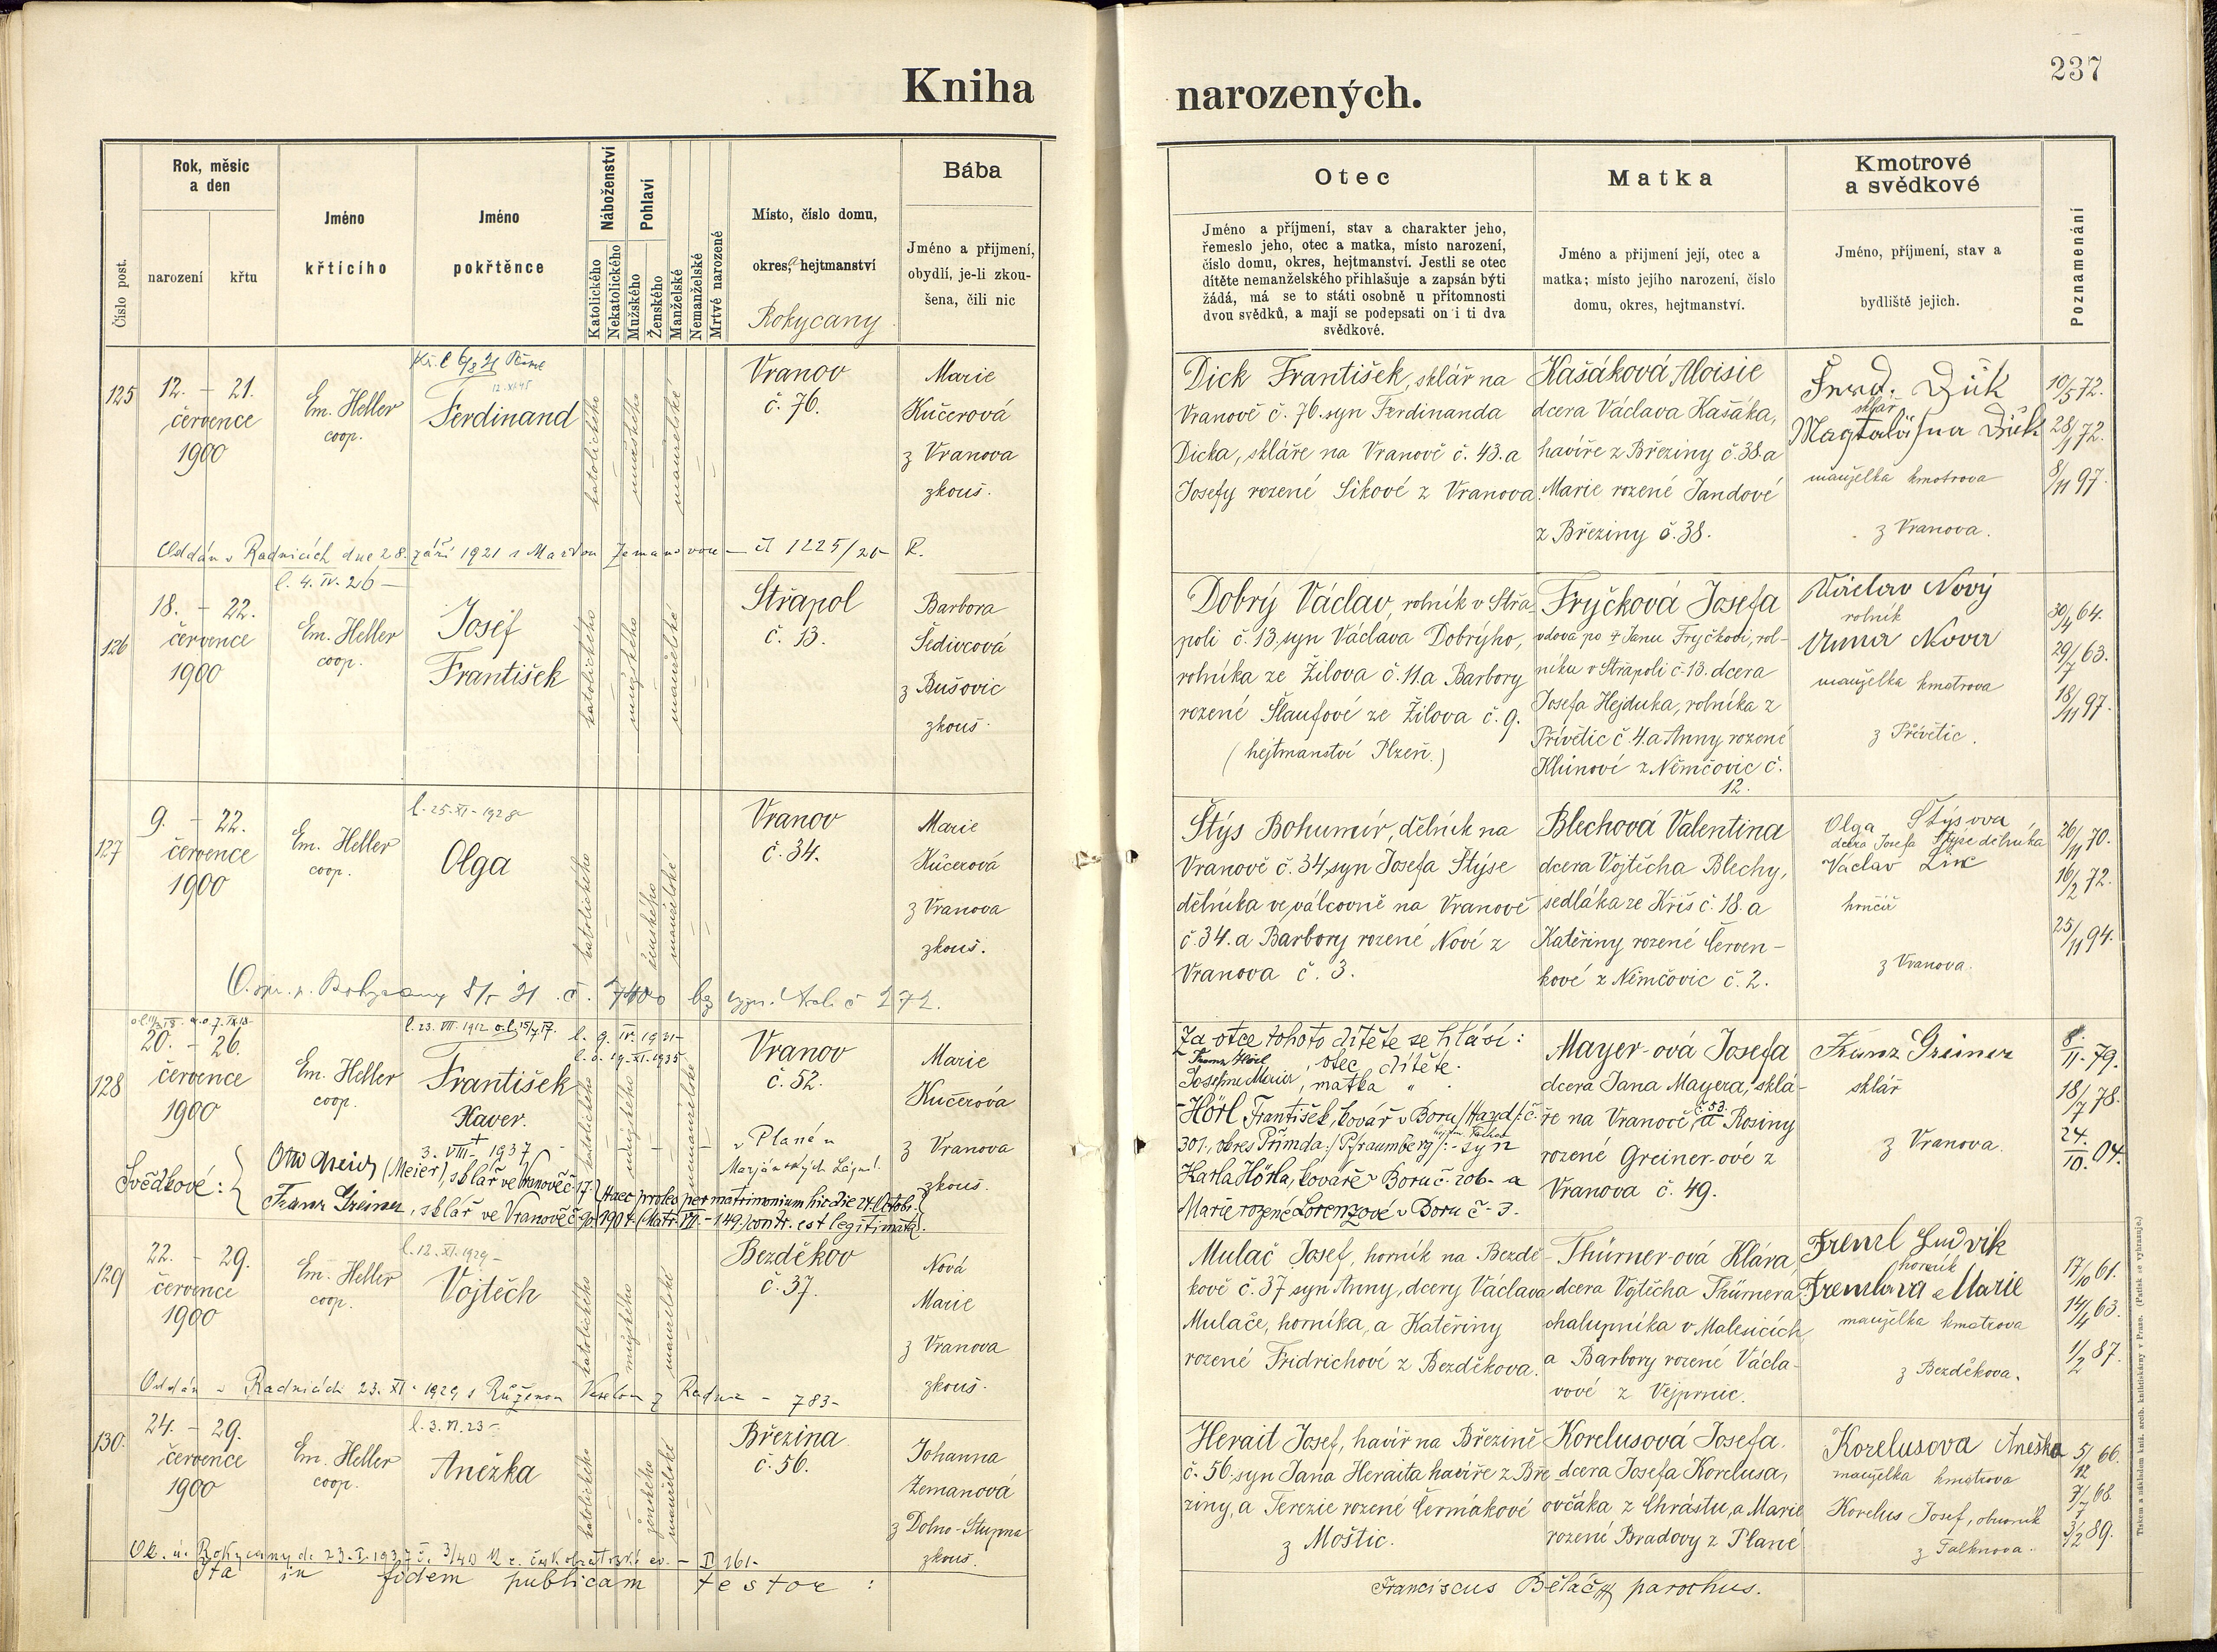 Kniha
narozených.
237
Číslo post.
Rok, měsíc
a den
narození
křtu
Jméno
křticího
Jméno
pokřtěnce
Náboženství
Katolického
Nekatolického
Pohlaví
Mužského
Ženského
Manželské
Nemanželské
Mrtvé narozené
Místo, číslo domu,
okres, hejtmanství
Rokycany
Bába
Jméno a přijmení,
obydlí, je-li zkou-
šena, čili nic
Otec
Jméno a příjmení, stav a charakter jeho,
řemeslo jeho, otec a matka, místo narození,
číslo domu, okres, hejtmanství. Jestli se otec
dítěte nemanželského přihlašuje a zapsán býti
žádá, má se to státi osobně u přítomnosti
dvou svědků, a mají se podepsati on i ti dva
svědkové.
Matka
Jméno a přijmení její, otec a
matka; místo jejího narození, číslo
domu, okres, hejtmanství.
Kmotrové
a svědkové
Jméno, příjmení, stav a
bydliště jejich.
Poznamenání
125
12. – 21.
července
1900
Em. Heller
coop.
Ferdinand
katolického
mužského
manželské
Vranov
č. 76.
Marie
Kučerová
z Vranova
zkouš.
Dick František, sklář na
Vranově č. 76. syn Ferdinanda
Dicka, skláře na Vranově č. 43. a
Josefy rozené Sikové z Vranova.
Kašáková Aloisie
dcera Václava Kašáka,
havíře z Březiny č. 38. a
Marie rozené Jandové
z Březiny č. 38.
Ferd. Dük
sklář
Magdaléna Dük
manželka kmotrova
z Vranova.
10/5 72.
28/1 72.
8/11 97.
Oddán v Radnicích dne 28. září 1921 s Marií Zemanovou – čí 1225/20 – R.
126
18. – 22.
července
1900
l. 4. IV. 26 –
Em. Heller
coop.
Josef
František
katolického
mužského
manželské
Střapol
č. 13.
Barbora
Šedivcová
z Bušovic
zkouš.
Dobrý Václav, rolník v Střa-
poli č. 13. syn Václava Dobrýho,
rolníka ze Žilova č. 11. a Barbory
rozené Šlaufové ze Žilova č. 9.
(hejtmanství Plzeň.)
Fryčková Josefa
vdova po † Janu Fryčkovi, rol-
níku v Střapoli č. 13. dcera
Josefa Hejduka, rolníka z
Přívětic č. 4. a Anny rozené
Klůnové z Němčovic č.
12.
Václav Nový
rolník
Anna Nová
manželka kmotrova
z Přívětic.
30/4 64.
29/7 63.
18/11 97.
127
9. – 22.
července
1900
Em. Heller
coop.
l. 25. XI. 1928
Olga
katolického
ženského
manželské
Vranov
č. 34.
Marie
Kučerová
z Vranova
zkouš.
Štýs Bohumír, dělník na
Vranově č. 34. syn Josefa Štýse
dělníka ve válcovně na Vranově
č. 34. a Barbory rozené Nové z
Vranova č. 3.
Blechová Valentina
dcera Vojtěcha Blechy,
sedláka ze Kříš č. 18. a
Kateřiny rozené Červen-
kové z Němčovic č. 2.
Olga Štýsova
dcera Josefa Štýse dělníka
Václav Zíc
hrnčíř
z Vranova.
26/11 70.
16/2 72.
25/11 94.
128
20. – 26.
července
1900
Em. Heller
coop.
l. 23. VIII. 1912
l. 9. IV. 1931 –
l. o. 19. XI. 1935
František
Xaver.
† 3. VIII. 1937
v Plané u
Marjánských Lázní.
katolického
mužského
nemanželské
Vranov
č. 52.
Marie
Kučerová
z Vranova
zkouš.
Svědkové:
Otto Meier (Meier), sklář ve Vranově č. 17.
Franz Greiner, sklář ve Vranově č. 90.
Haec proles per matrimonium hic die 24. Octobr.
1904. (Matr. VII. – 149.) contr. est legitimata.
Za otce tohoto dítěte se hlásí:
Franz Hörl, otec dítěte.
Josefine Maier, matka "
Hörl František, kovář v Boru /Hayd/: č.
301, okres Přimda /: Pfraumberg :/ – syn
Karla Hörla, kováře v Boru č. 206. a
Marie rozené Lorenzové v Boru č. 3.
Mayer-ová Josefa
dcera Jana Mayera, sklá-
ře na Vranově, č. 53. a Rosiny
rozené Greiner-ové z
Vranova č. 49.
Franz Greiner
sklář
z Vranova.
8./11. 79.
18/7 78.
24./10. 04.
129
22. – 29.
července
1900
Em. Heller
coop.
l. 12. XI. 1929 –
Vojtěch
katolického
mužského
manželské
Bezděkov
č. 37.
Nová
Marie
z Vranova
zkouš.
Mulač Josef, horník na Bezdě-
kově č. 37 syn Anny, dcery Václava
Mulače, horníka, a Kateřiny
rozené Fridrichové z Bezděkova.
Thürner-ová Klára,
dcera Vojtěcha Thürnera
chalupníka v Malesicích
a Barbory rozené Václa-
vové z Vejprnic.
Freml Ludvik
horník
Fremlova Marie
manželka kmotrova
z Bezděkova.
17/10 61.
14/4 63.
1/2 87.
Oddán v Radnicích 23. XI. 1929 s Růženou Veselou z Radnic – 783 –
130.
24. – 29.
července
1900
Em. Heller
coop.
l. 3. VI. 23 –
Anežka
katolického
ženského
manželské
Březina
č. 56.
Johanna
Zemanová
z Dolno-Stupna
zkouš.
Herait Josef, havíř na Březině
č. 56. syn Jana Heraita havíře z Bře-
ziny, a Terezie rozené Čermákové
z Moštic.
Korelusová Josefa.
dcera Josefa Korelusa,
ovčáka z Chrástu, a Marie
rozené Bradovy z Plané
Korelusova Aneška
manželka kmotrova
Korelus Josef, obuvník
z Falknova.
5/12 66.
7/7 68.
3/2 89.
Ita in fidem publicam testor:
Franciscus Bělač parochus.
Tiskem a nákladem kníž. arcib. knihtiskárny v Praze. (Patisk se vyhrazuje.)